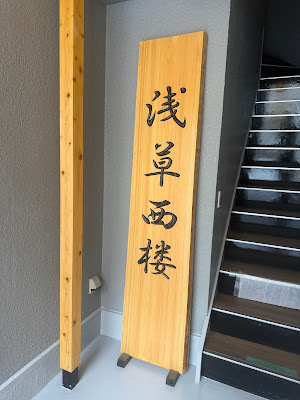 浅草西楼